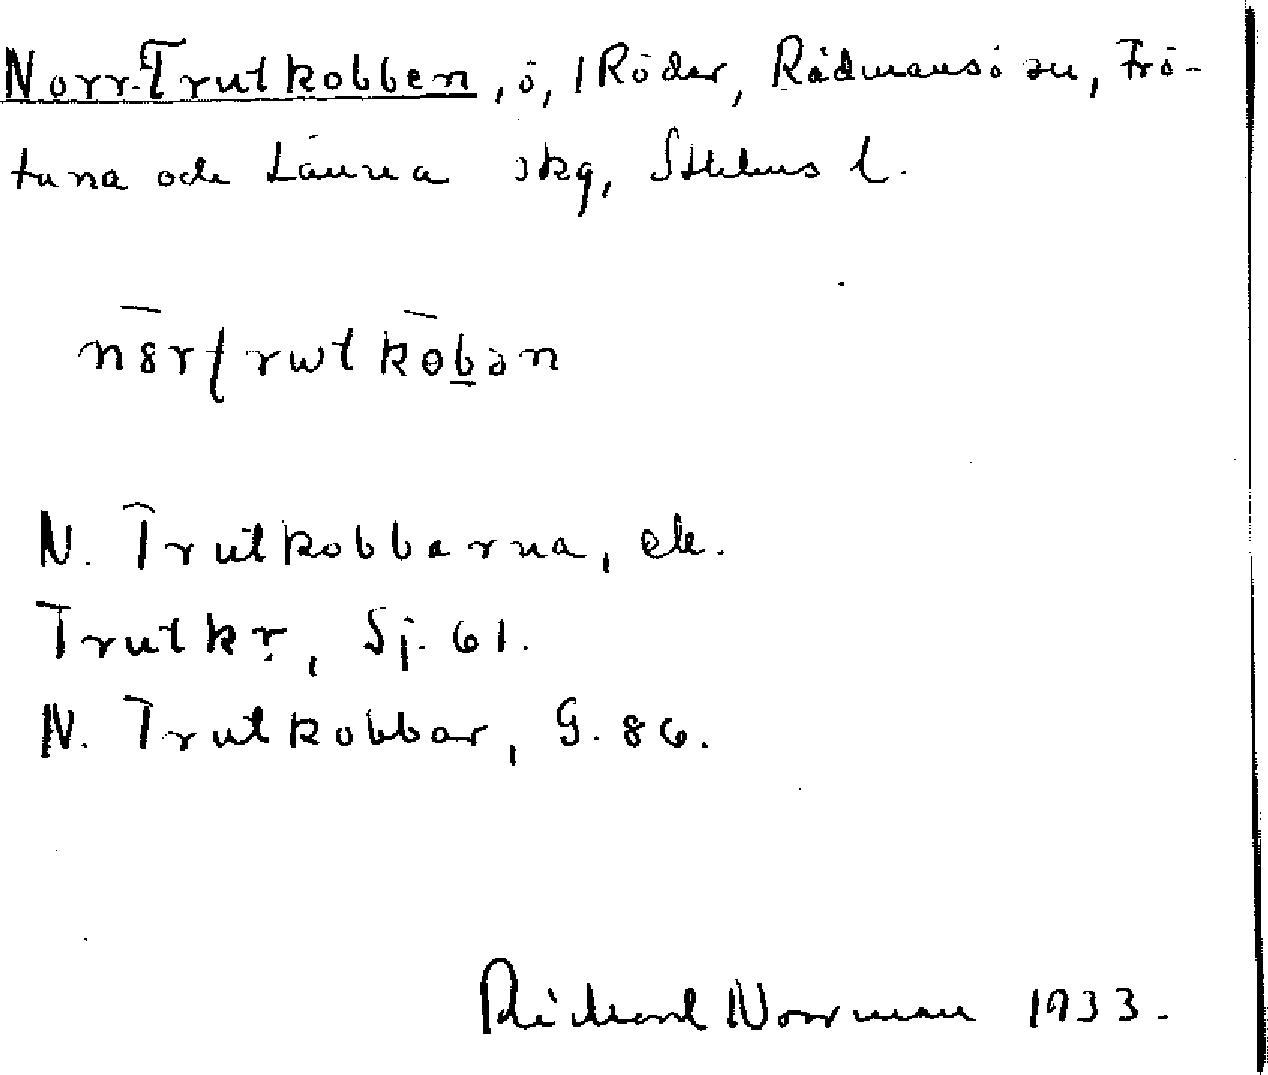 Norr-Trutkobben, ö, i Röder, Rådmansö sn, Frö-
tuna och Länna skg, Sthlms l.
N. Trutkobbarna, ek.
Trutkr, Sj. 61.
N. Trutkobbar, G. 86.
Richard Norrman 1933.